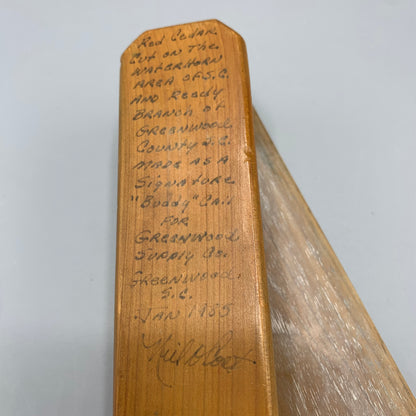 Red Cedar
Cut on The
WATERHORN
AREA OF S.C.
AND REEDY
BRANCH of
GREENWOOD
COUNTY S.C.
MADE AS A
Signature
"Buddy" Call
FOR
GREENWOOD
SUPPLY Co.
GREENWOOD,
S.C.
JAN 1985
Neil